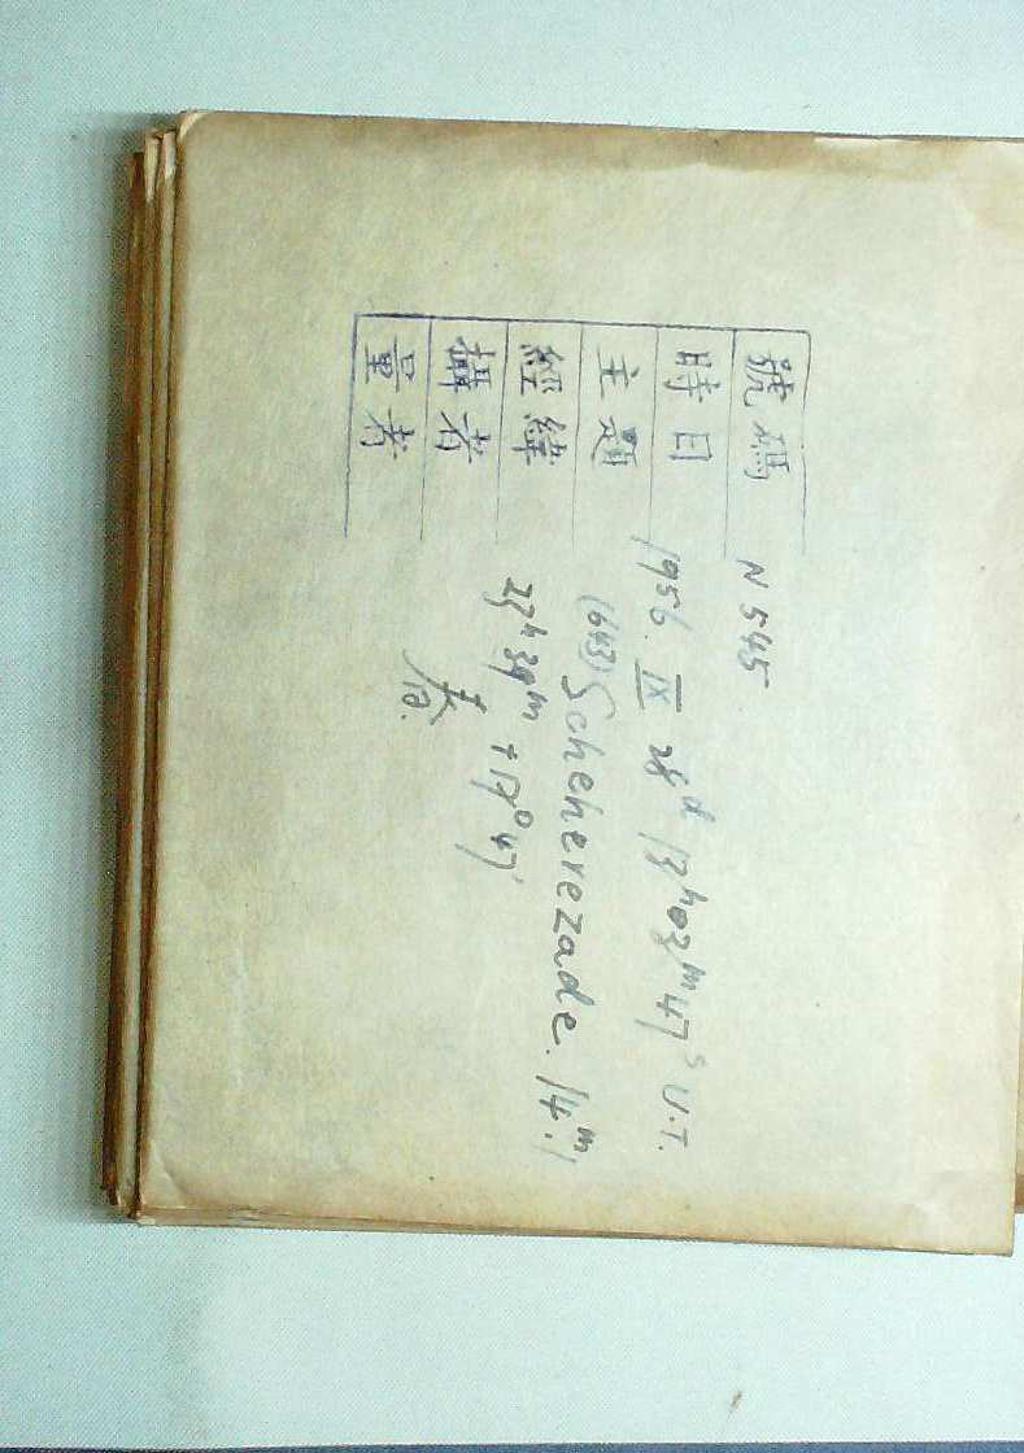 號碼 N 545
時日 1956. IX 28d 13h03m47s U.T.
主題 (643) Scheherezade. 14.m1
經緯 23h 39m +17° 47'
攝者
量者